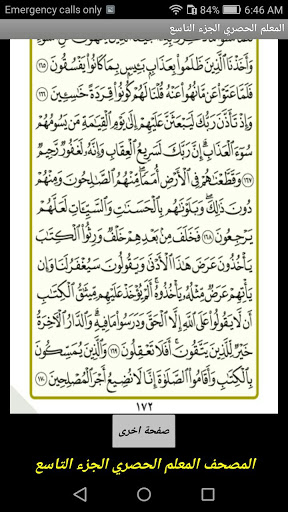 Emergency calls only 6:46 AM
المعلم الحصري الجزء التاسع
وَأَخَذْنَا الَّذِينَ ظَلَمُوا بِعَذَابٍ بَئِيسٍ بِمَا كَانُوا يَفْسُقُونَ ١٦٥
فَلَمَّا عَتَوْا عَنْ مَا نُهُوا عَنْهُ قُلْنَا لَهُمْ كُونُوا قِرَدَةً خَاسِئِينَ ١٦٦
وَإِذْ تَأَذَّنَ رَبُّكَ لَيَبْعَثَنَّ عَلَيْهِمْ إِلَى يَوْمِ الْقِيَامَةِ مَنْ يَسُومُهُمْ
سُوءَ الْعَذَابِ إِنَّ رَبَّكَ لَسَرِيعُ الْعِقَابِ وَإِنَّهُ لَغَفُورٌ رَحِيمٌ
١٦٧ وَقَطَّعْنَاهُمْ فِي الْأَرْضِ أُمَمًا مِنْهُمُ الصَّالِحُونَ وَمِنْهُمْ
دُونَ ذَلِكَ وَبَلَوْنَاهُمْ بِالْحَسَنَاتِ وَالسَّيِّئَاتِ لَعَلَّهُمْ
يَرْجِعُونَ ١٦٨ فَخَلَفَ مِنْ بَعْدِهِمْ خَلْفٌ وَرِثُوا الْكِتَابَ
يَأْخُذُونَ عَرَضَ هَذَا الْأَدْنَى وَيَقُولُونَ سَيُغْفَرُ لَنَا وَإِنْ
يَأْتِهِمْ عَرَضٌ مِثْلُهُ يَأْخُذُوهُ أَلَمْ يُؤْخَذْ عَلَيْهِمْ مِيثَاقُ الْكِتَابِ
أَنْ لَا يَقُولُوا عَلَى اللَّهِ إِلَّا الْحَقَّ وَدَرَسُوا مَا فِيهِ وَالدَّارُ الْآخِرَةُ
خَيْرٌ لِلَّذِينَ يَتَّقُونَ أَفَلَا تَعْقِلُونَ ١٦٩ وَالَّذِينَ يُمَسِّكُونَ
بِالْكِتَابِ وَأَقَامُوا الصَّلَاةَ إِنَّا لَا نُضِيعُ أَجْرَ الْمُصْلِحِينَ ١٧٠
١٧٢
صفحة اخرى
المصحف المعلم الحصري الجزء التاسع